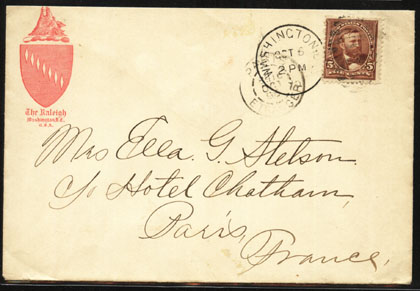 The Raleigh
Washington, D.C.
U.S.A.
WASHINGTON
OCT 6
2 PM
5 5
Mrs Ella G. Stetson.
c/o Hotel Chatham,
Paris,
France,